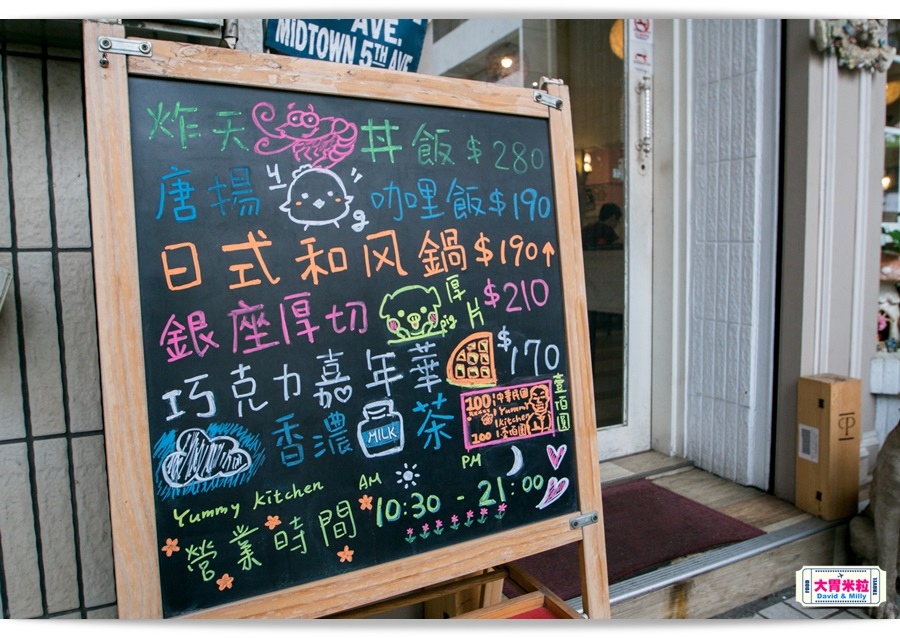 AVE.
MIDTOWN 5TH AVE
炸天丼飯$280
唐揚咖哩飯$190
日式和风鍋$190↑
銀座厚切pig厚片$210
巧克力嘉年華$170
香濃MILK茶
100
中華民國
Yummy
Kitchen
100
壹佰圓
壹佰圓
Yummy Kitchen AM PM
營業時間 10:30 - 21:00
FOOD 大胃米粒 TRAVEL
David & Milly